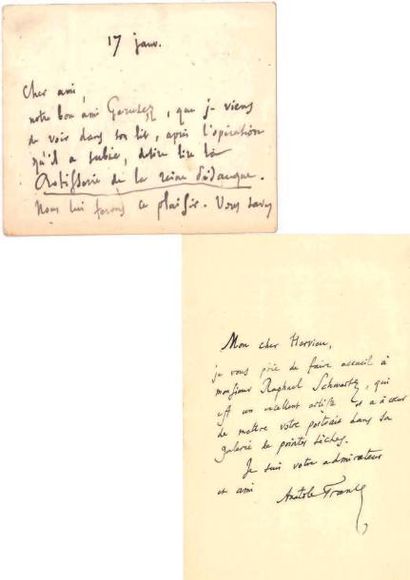 17 janv.
Cher ami,
notre bon ami Ganderax, que je viens
de voir dans son lit, après l'opération
qu'il a subie, désire lire la
Rotisserie de la reine Pédauque.
Nous lui ferons ce plaisir. Vous savez
Mon cher Hervieu,
je vous prie de faire accueil à
monsieur Raphael Schwartz, qui
est un excellent artiste et a à cœur
de mettre votre portrait dans sa
galerie de pointes sèches.
Je suis votre admirateur
et ami
Anatole France